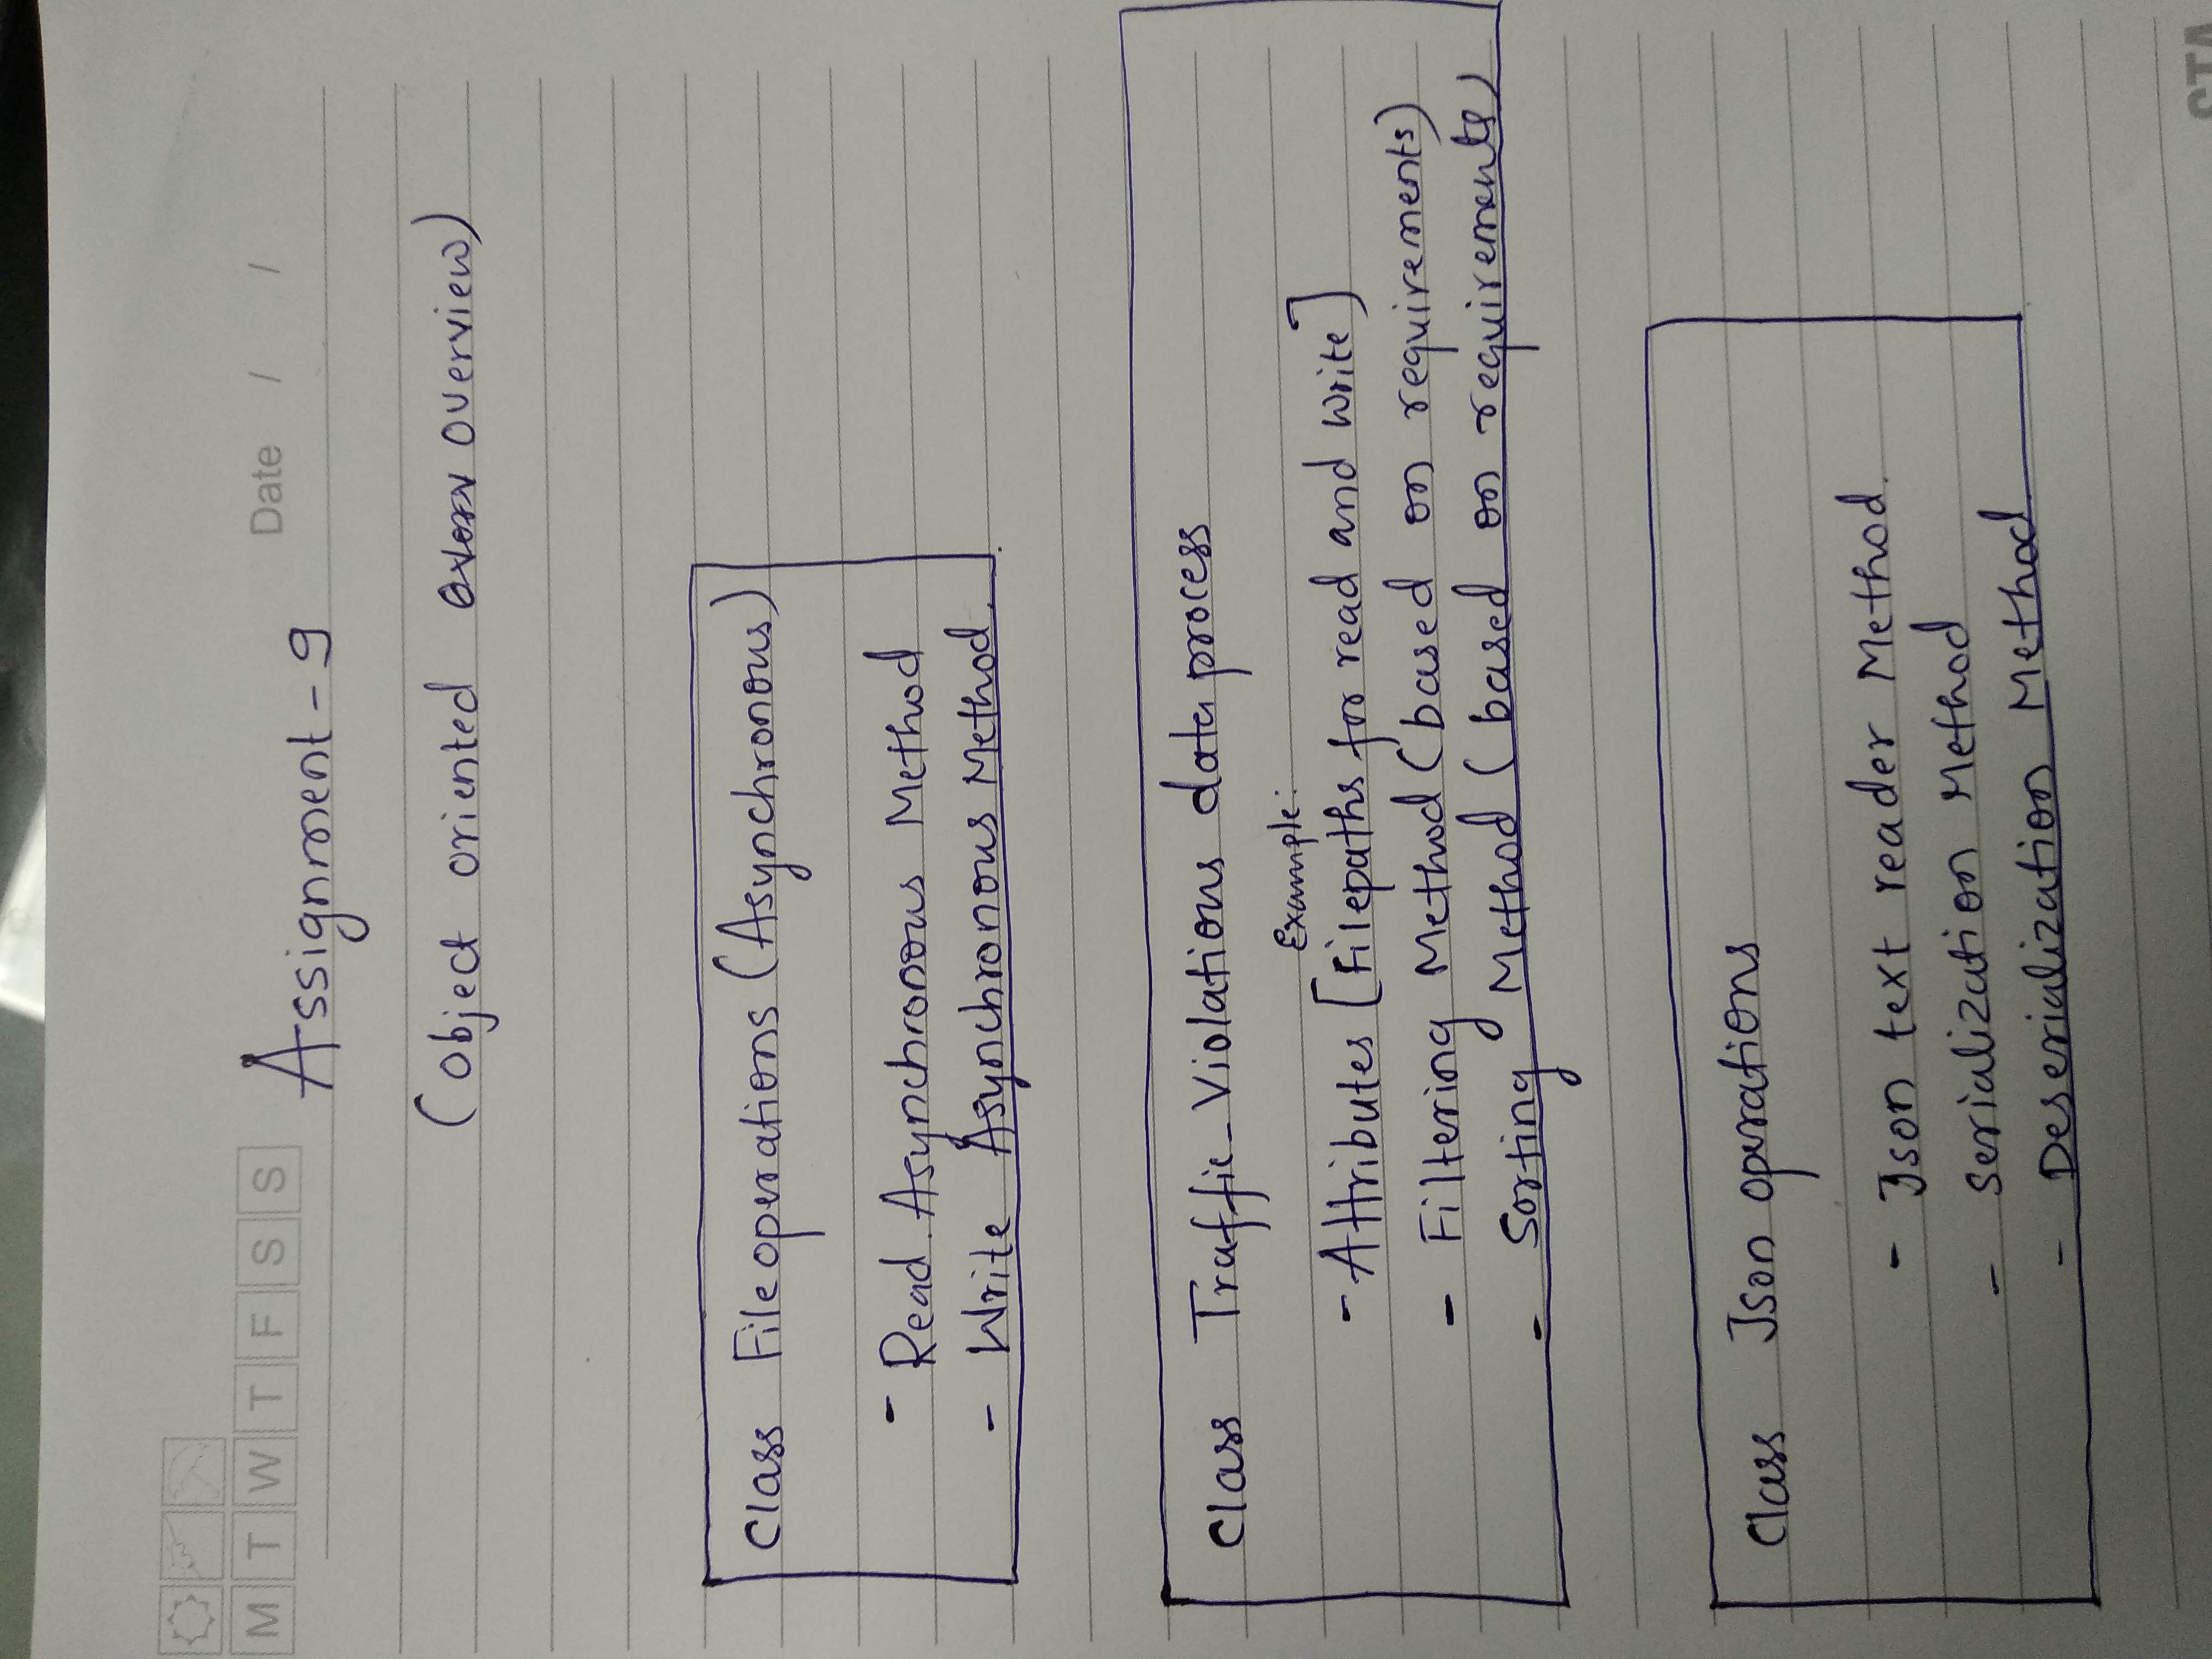 M T W T F S S
Date / /
Assignment - 9
(Object oriented overview)
Class Fileoperations (Asynchronous)
- Read Asynchronous Method
- Write Asynchronous Method.
Class Traffic_Violations dataprocess
Example:
- Attributes [Filepaths for read and write]
- Filtering Method (based on requirements)
- Sorting Method (based on requirements)
Class Json operations
- Json text reader Method.
- Serialization Method
- Deserialization Method